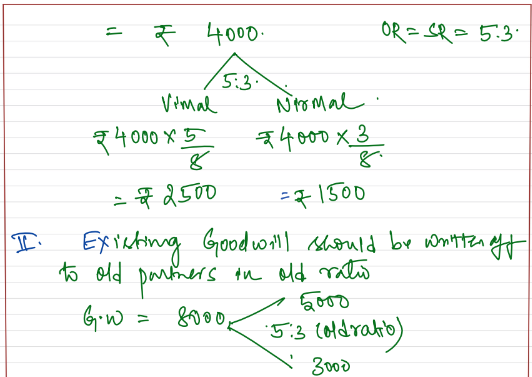 = ₹ 4000. OR = SR = 5:3.
5:3.
Vimal Nirmal.
₹4000 × 5/8 ₹4000 × 3/8.
= ₹ 2500 = ₹ 1500
II. Existing Goodwill should be written off
to old partners in old ratio
5000
G.W = 8000 5:3 (old ratio)
3000